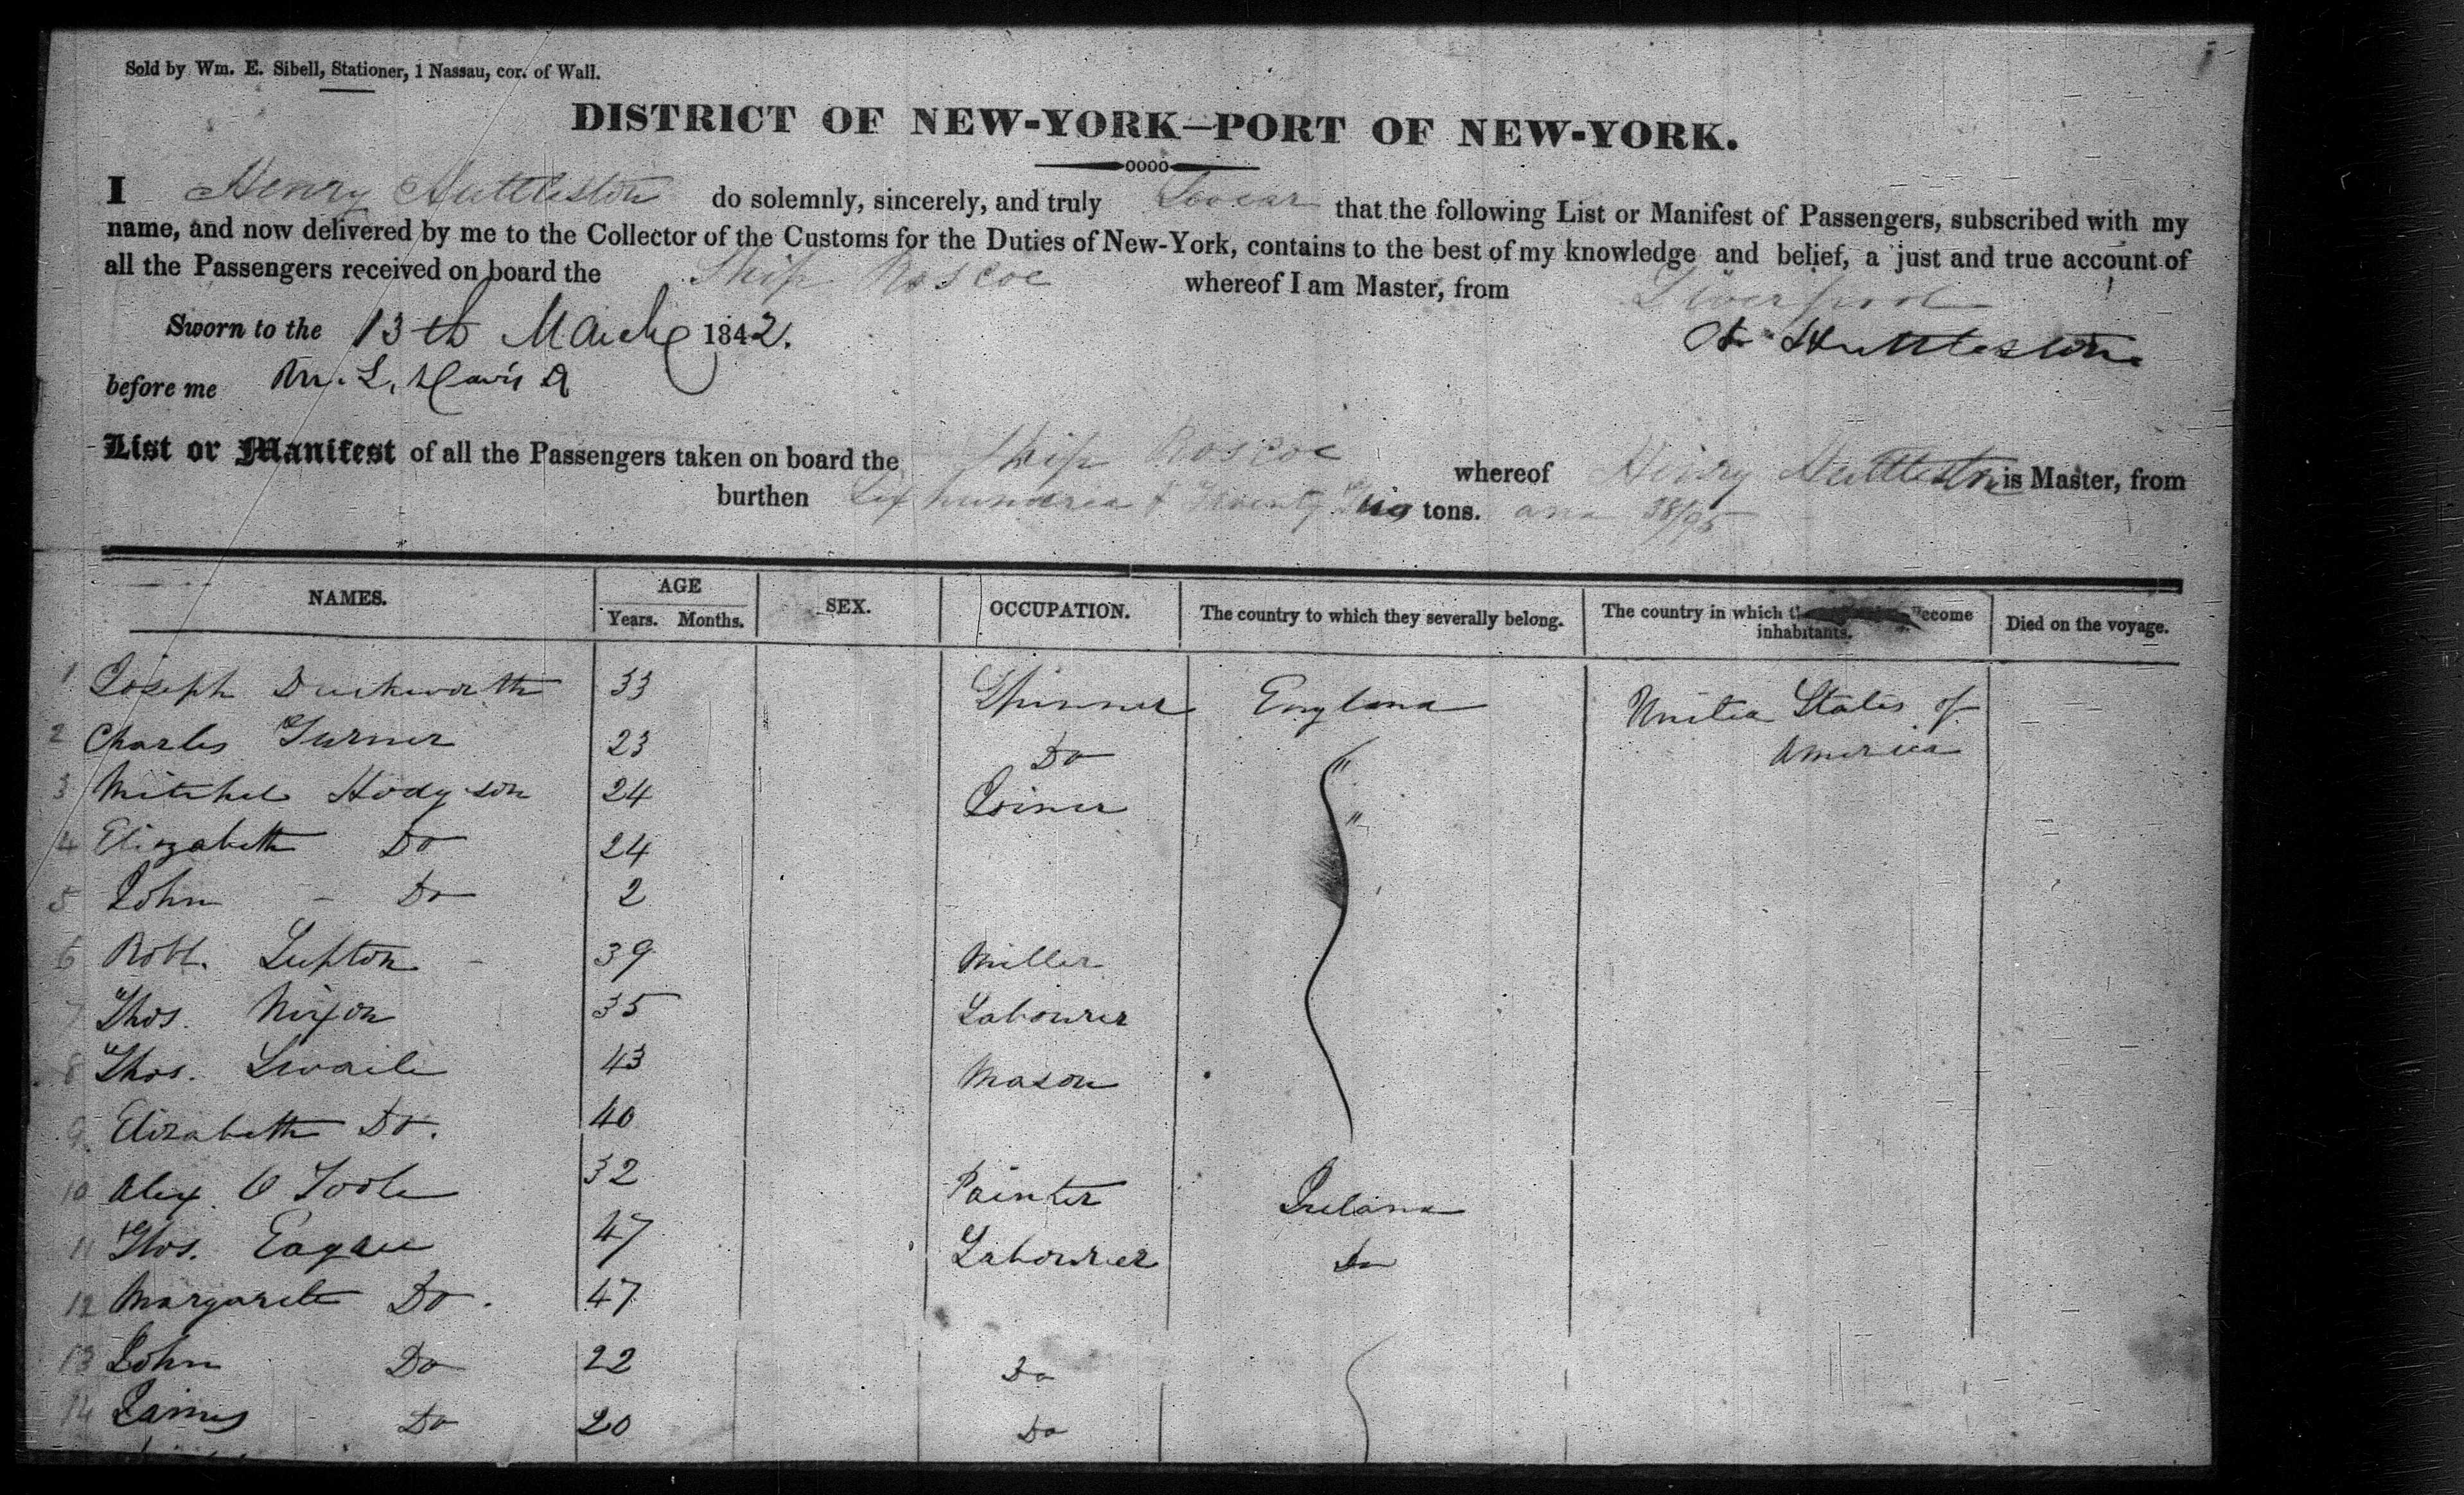 Sold by Wm. E. Sibell, Stationer, 1 Nassau, cor. of Wall.
DISTRICT OF NEW-YORK—PORT OF NEW-YORK.
I Henry Huttleston do solemnly, sincerely, and truly Swear that the following List or Manifest of Passengers, subscribed with my
name, and now delivered by me to the Collector of the Customs for the Duties of New-York, contains to the best of my knowledge and belief, a just and true account of
all the Passengers received on board the Ship Roscoe whereof I am Master, from Liverpool
Sworn to the 13th March 1842. H. Huttleston
before me M. L. Davis
List or Manifest of all the Passengers taken on board the Ship Roscoe whereof Henry Huttleston is Master, from
burthen Six hundred & Twenty Two tons. and 38/95
NAMES. AGE SEX. OCCUPATION. The country to which they severally belong. The country in which become inhabitants. Died on the voyage.
Years. Months.
1 Joseph Duckworth 33 Spinner England United States of
America
2 Charles Turner 23 Do "
3 Mitchel Hodgson 24 Joiner "
4 Elizabeth Do 24
5 John - Do 2
6 Robt. Lupton - 39 Miller
7 Thos. Nixon 35 Labourer
8 Thos. Swaile 43 Mason
9 Elizabeth Do. 40
10 Alex. O Toole 32 Painter Ireland
11 Thos. Eagan 47 Labourer Do
12 Margarete Do. 47
13 John Do 22 Do
14 James Do 20 Do